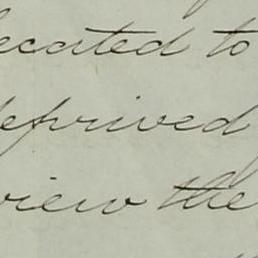 ecated to
deprived
view the